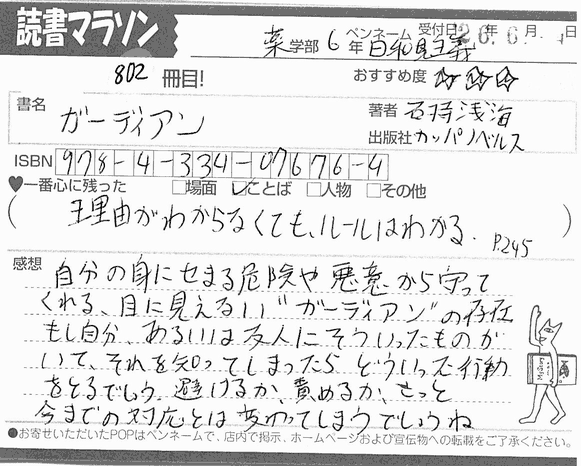 読書マラソン
薬学部 6年 ペンネーム 日和見主義 受付日 20年 6月 日
802 冊目! おすすめ度 ☆☆☆
書名 ガーディアン 著者 石持浅海
出版社 カッパノベルス
ISBN 978-4-334-07676-4
♥一番心に残った □場面 ☑ことば □人物 □その他
(理由がわからなくても、ルールはわかる. P.245)
感想 自分の身にせまる危険や悪意から守って
くれる、目に見えない"ガーディアン"の存在
もし自分、あるいは友人にそういったものが
いて、それを知ってしまったら どういった行動
をとるでしょう. 避けるか、責めるか、きっと
今までの対応とは変わってしまうでしょうね
●お寄せいただいたPOPはペンネームで、店内で掲示、ホームページおよび宣伝物への転載をご了承ください。